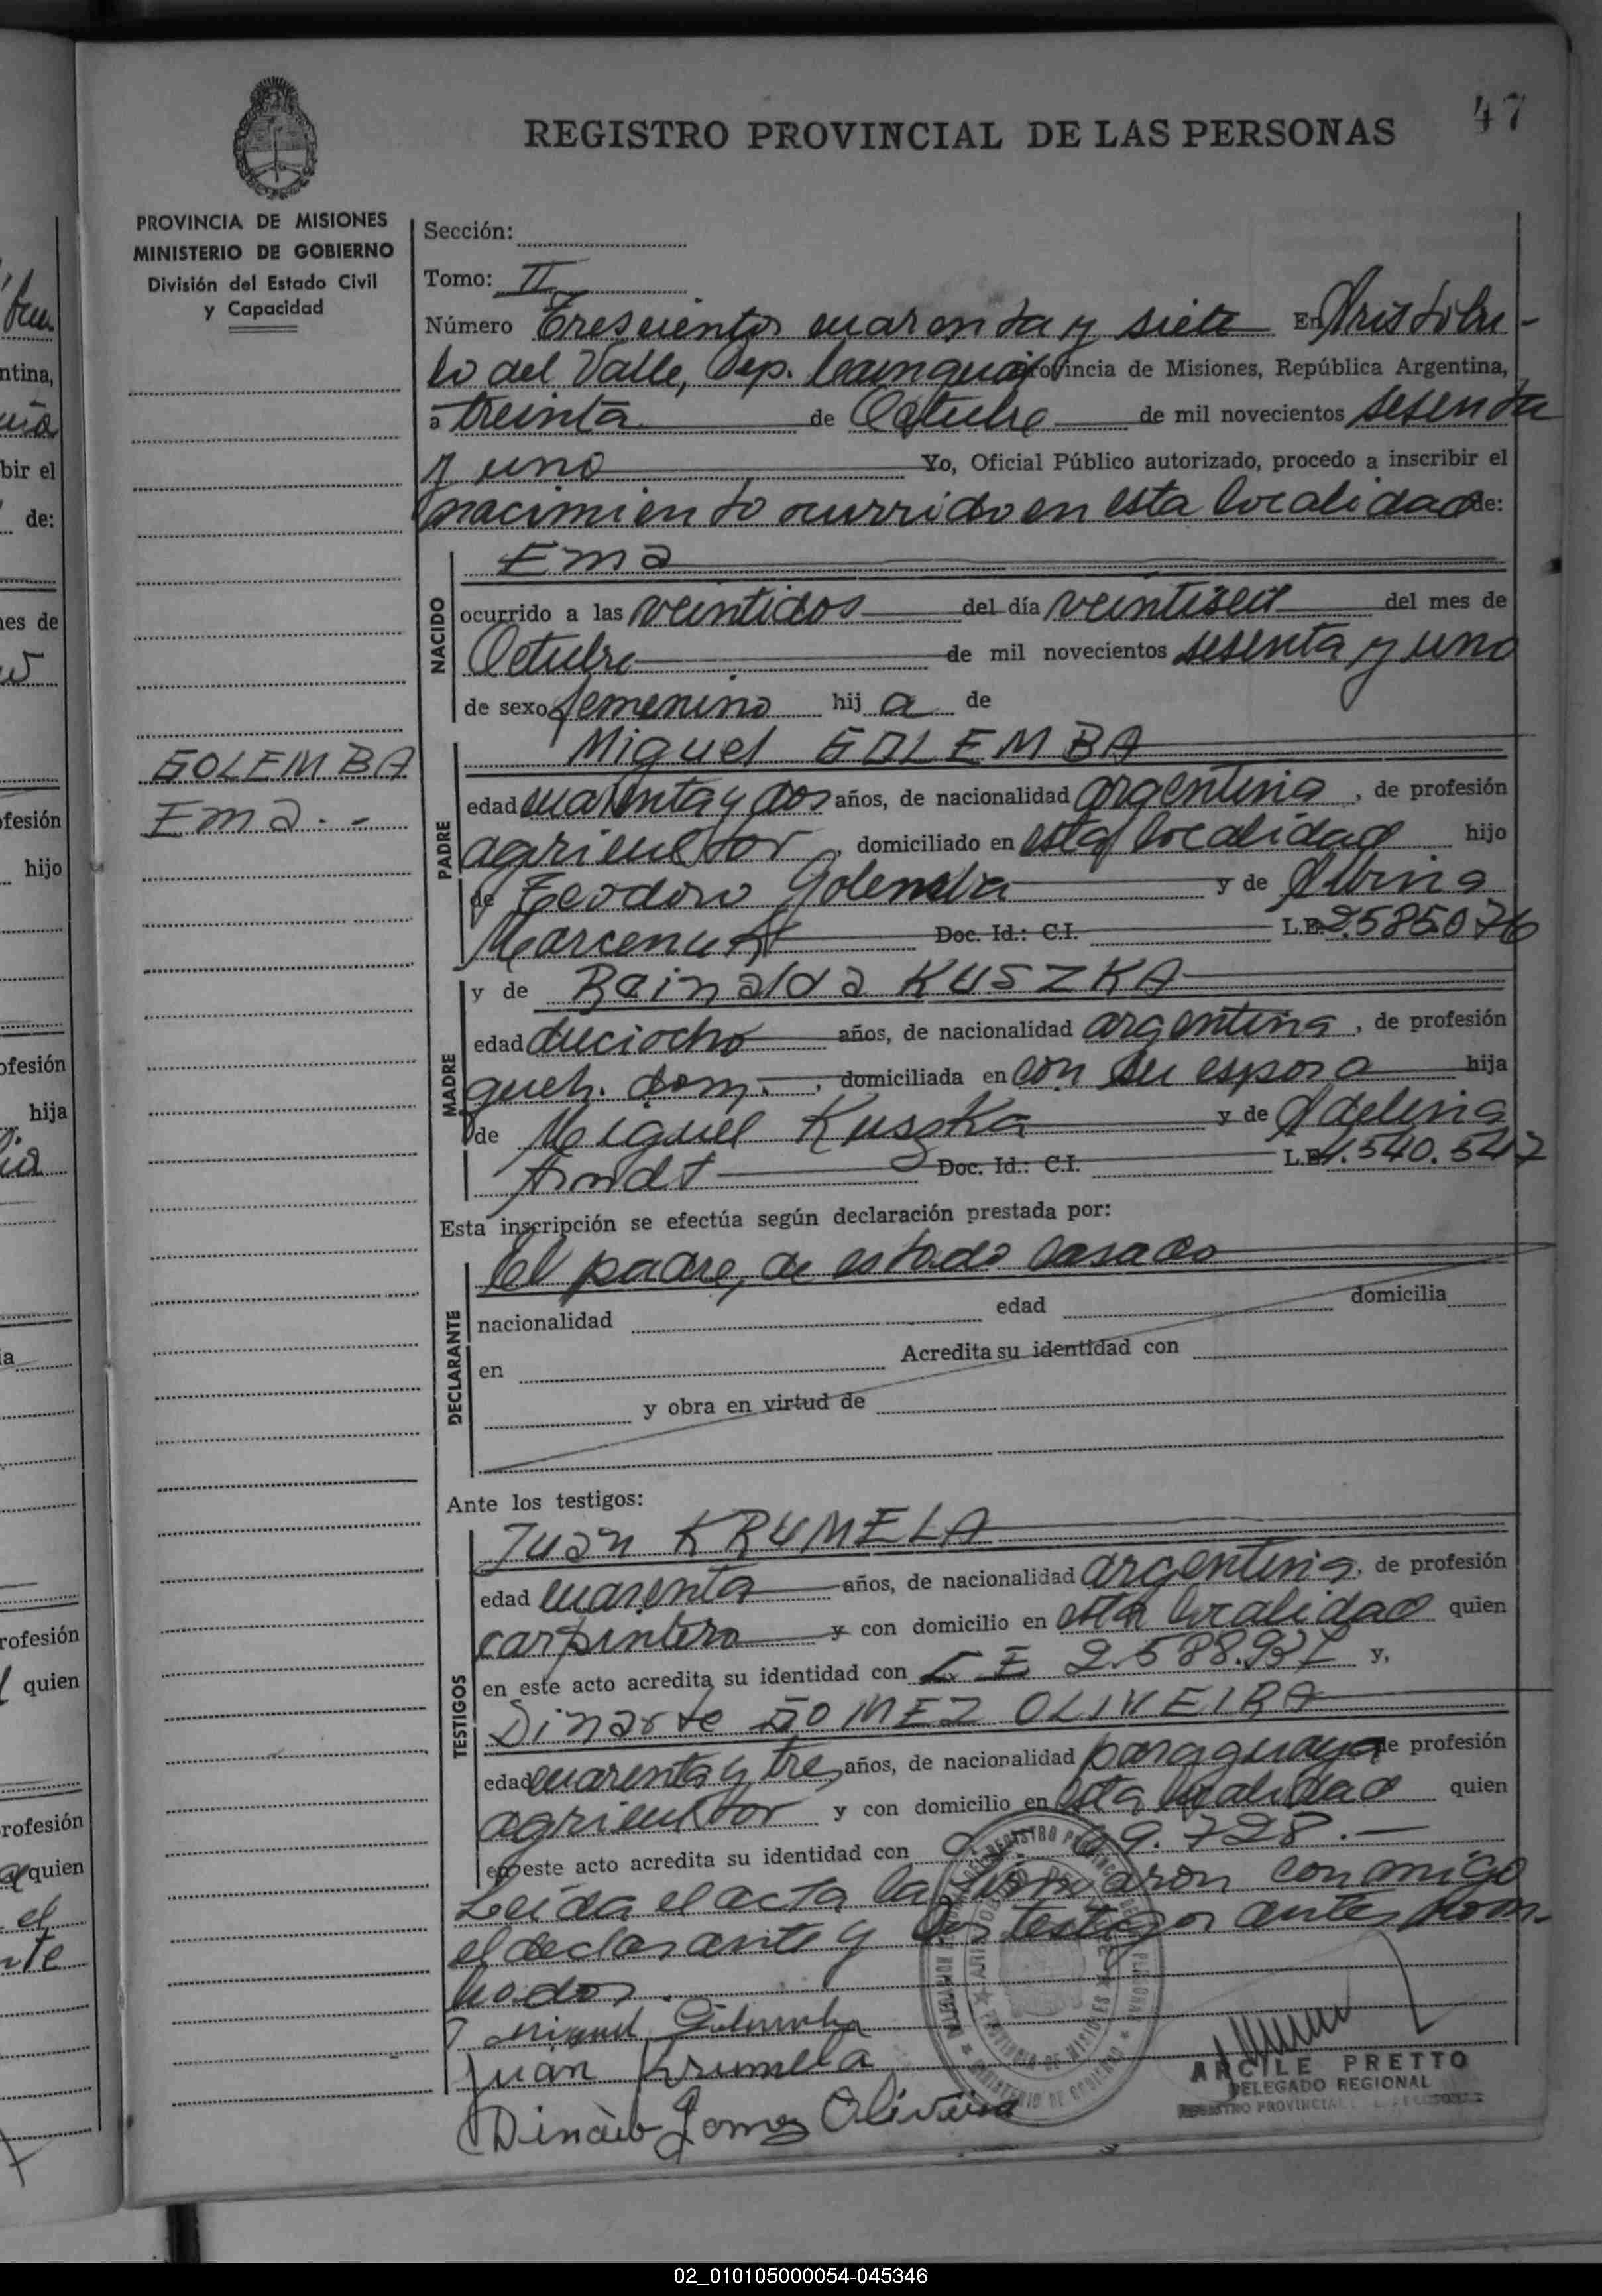 47
REGISTRO PROVINCIAL DE LAS PERSONAS
PROVINCIA DE MISIONES
MINISTERIO DE GOBIERNO
División del Estado Civil
y Capacidad
GOLEMBA
Ema.-
Sección:
Tomo: II
Número Trescientos cuarenta y siete En Aristobu-
lo del Valle, Dep. Cainguás Provincia de Misiones, República Argentina,
a treinta de Octubre de mil novecientos sesenta
y uno Yo, Oficial Público autorizado, procedo a inscribir el
nacimiento ocurrido en esta localidad de:
NACIDO
Ema
ocurrido a las veintidos del día veintiseis del mes de
Octubre de mil novecientos sesenta y uno
de sexo femenino hij a de
PADRE
Miguel GOLEMBA
edad cuarenta y dos años, de nacionalidad argentina, de profesión
agricultor, domiciliado en esta localidad hijo
de Teodoro Golemba y de Albina
Doc. Id.: C.I. L.E. 2.585.076
MADRE
y de Rainalda KUSZKA
edad dieciocho años, de nacionalidad argentina, de profesión
queh. dom., domiciliada en con su esposo hija
de Miguel Kuszka y de Adelina
Arndt Doc. Id.: C.I. L.E. 1.540.547
Esta inscripción se efectúa según declaración prestada por:
DECLARANTE
El padre, de estado casado
nacionalidad edad domicilia
en Acredita su identidad con
y obra en virtud de
Ante los testigos:
TESTIGOS
Juan KRUMELA
edad cuarenta años, de nacionalidad argentina, de profesión
carpintero y con domicilio en esta localidad quien
en este acto acredita su identidad con L E 2.588.937 y,
Dinarte GOMEZ OLIVEIRA
edad cuarenta y tres años, de nacionalidad paraguaya de profesión
agricultor y con domicilio en esta localidad quien
en este acto acredita su identidad con 9.728.-
Leída el acta la firmaron conmigo
el declarante y los testigos antes nom-
brados.
Miguel Golemba
Juan Krumela
Dinarte Gomez Oliveira
ARCILE PRETTO
DELEGADO REGIONAL
REGISTRO PROVINCIAL
02_010105000054-045346